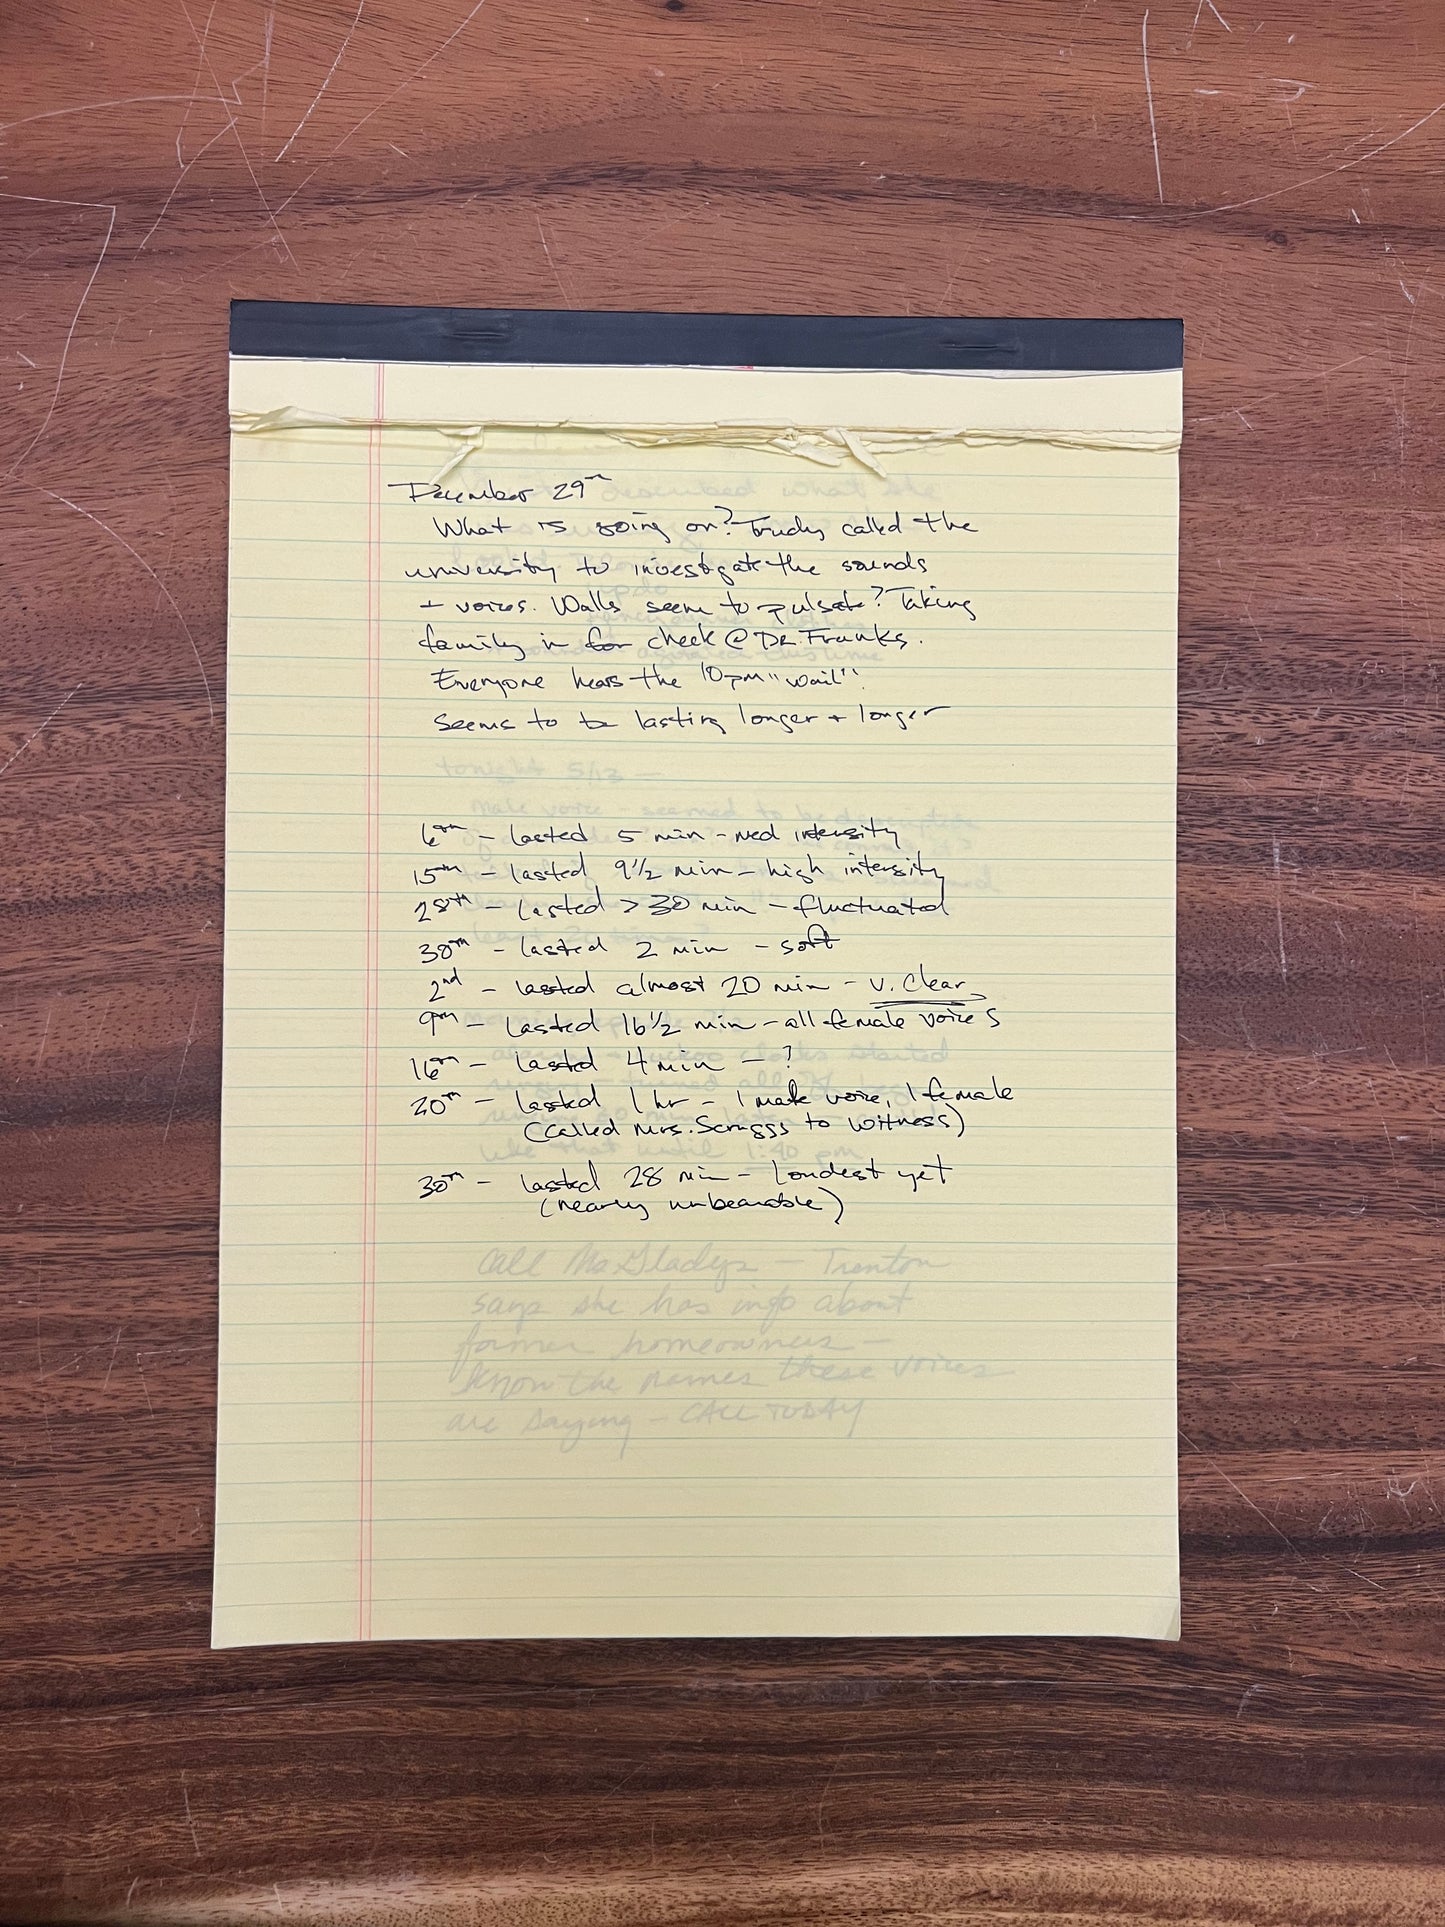 December 29th
What is going on? Trudy called the
university to investigate the sounds
+ voices. Walls seem to pulsate? Taking
family in for check @ Dr. Franks.
Everyone hears the 10pm "wail".
Seems to be lasting longer + longer
tonight 5/13 —
male voice - seemed to be
6th - lasted 5 min - med intensity
15th - lasted 9 1/2 min - high intensity
28th - lasted > 30 min - fluctuated
30th - lasted 2 min - soft
2nd - lasted almost 20 min - v. clear
9th - lasted 16 1/2 min - all female voices
16th - lasted 4 min - ?
20th - lasted 1 hr - 1 male voice, 1 female
(called Mrs. Scruggs to witness)
like that until 1:40 pm
30th - lasted 28 min - Loudest yet
(nearly unbearable)
Call Ms. Gladys — Trenton
says she has info about
former homeowners —
know the names these voices
are saying - CALL TODAY